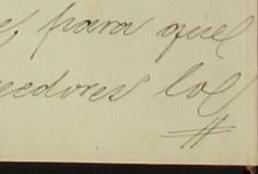 , para que
eedores los